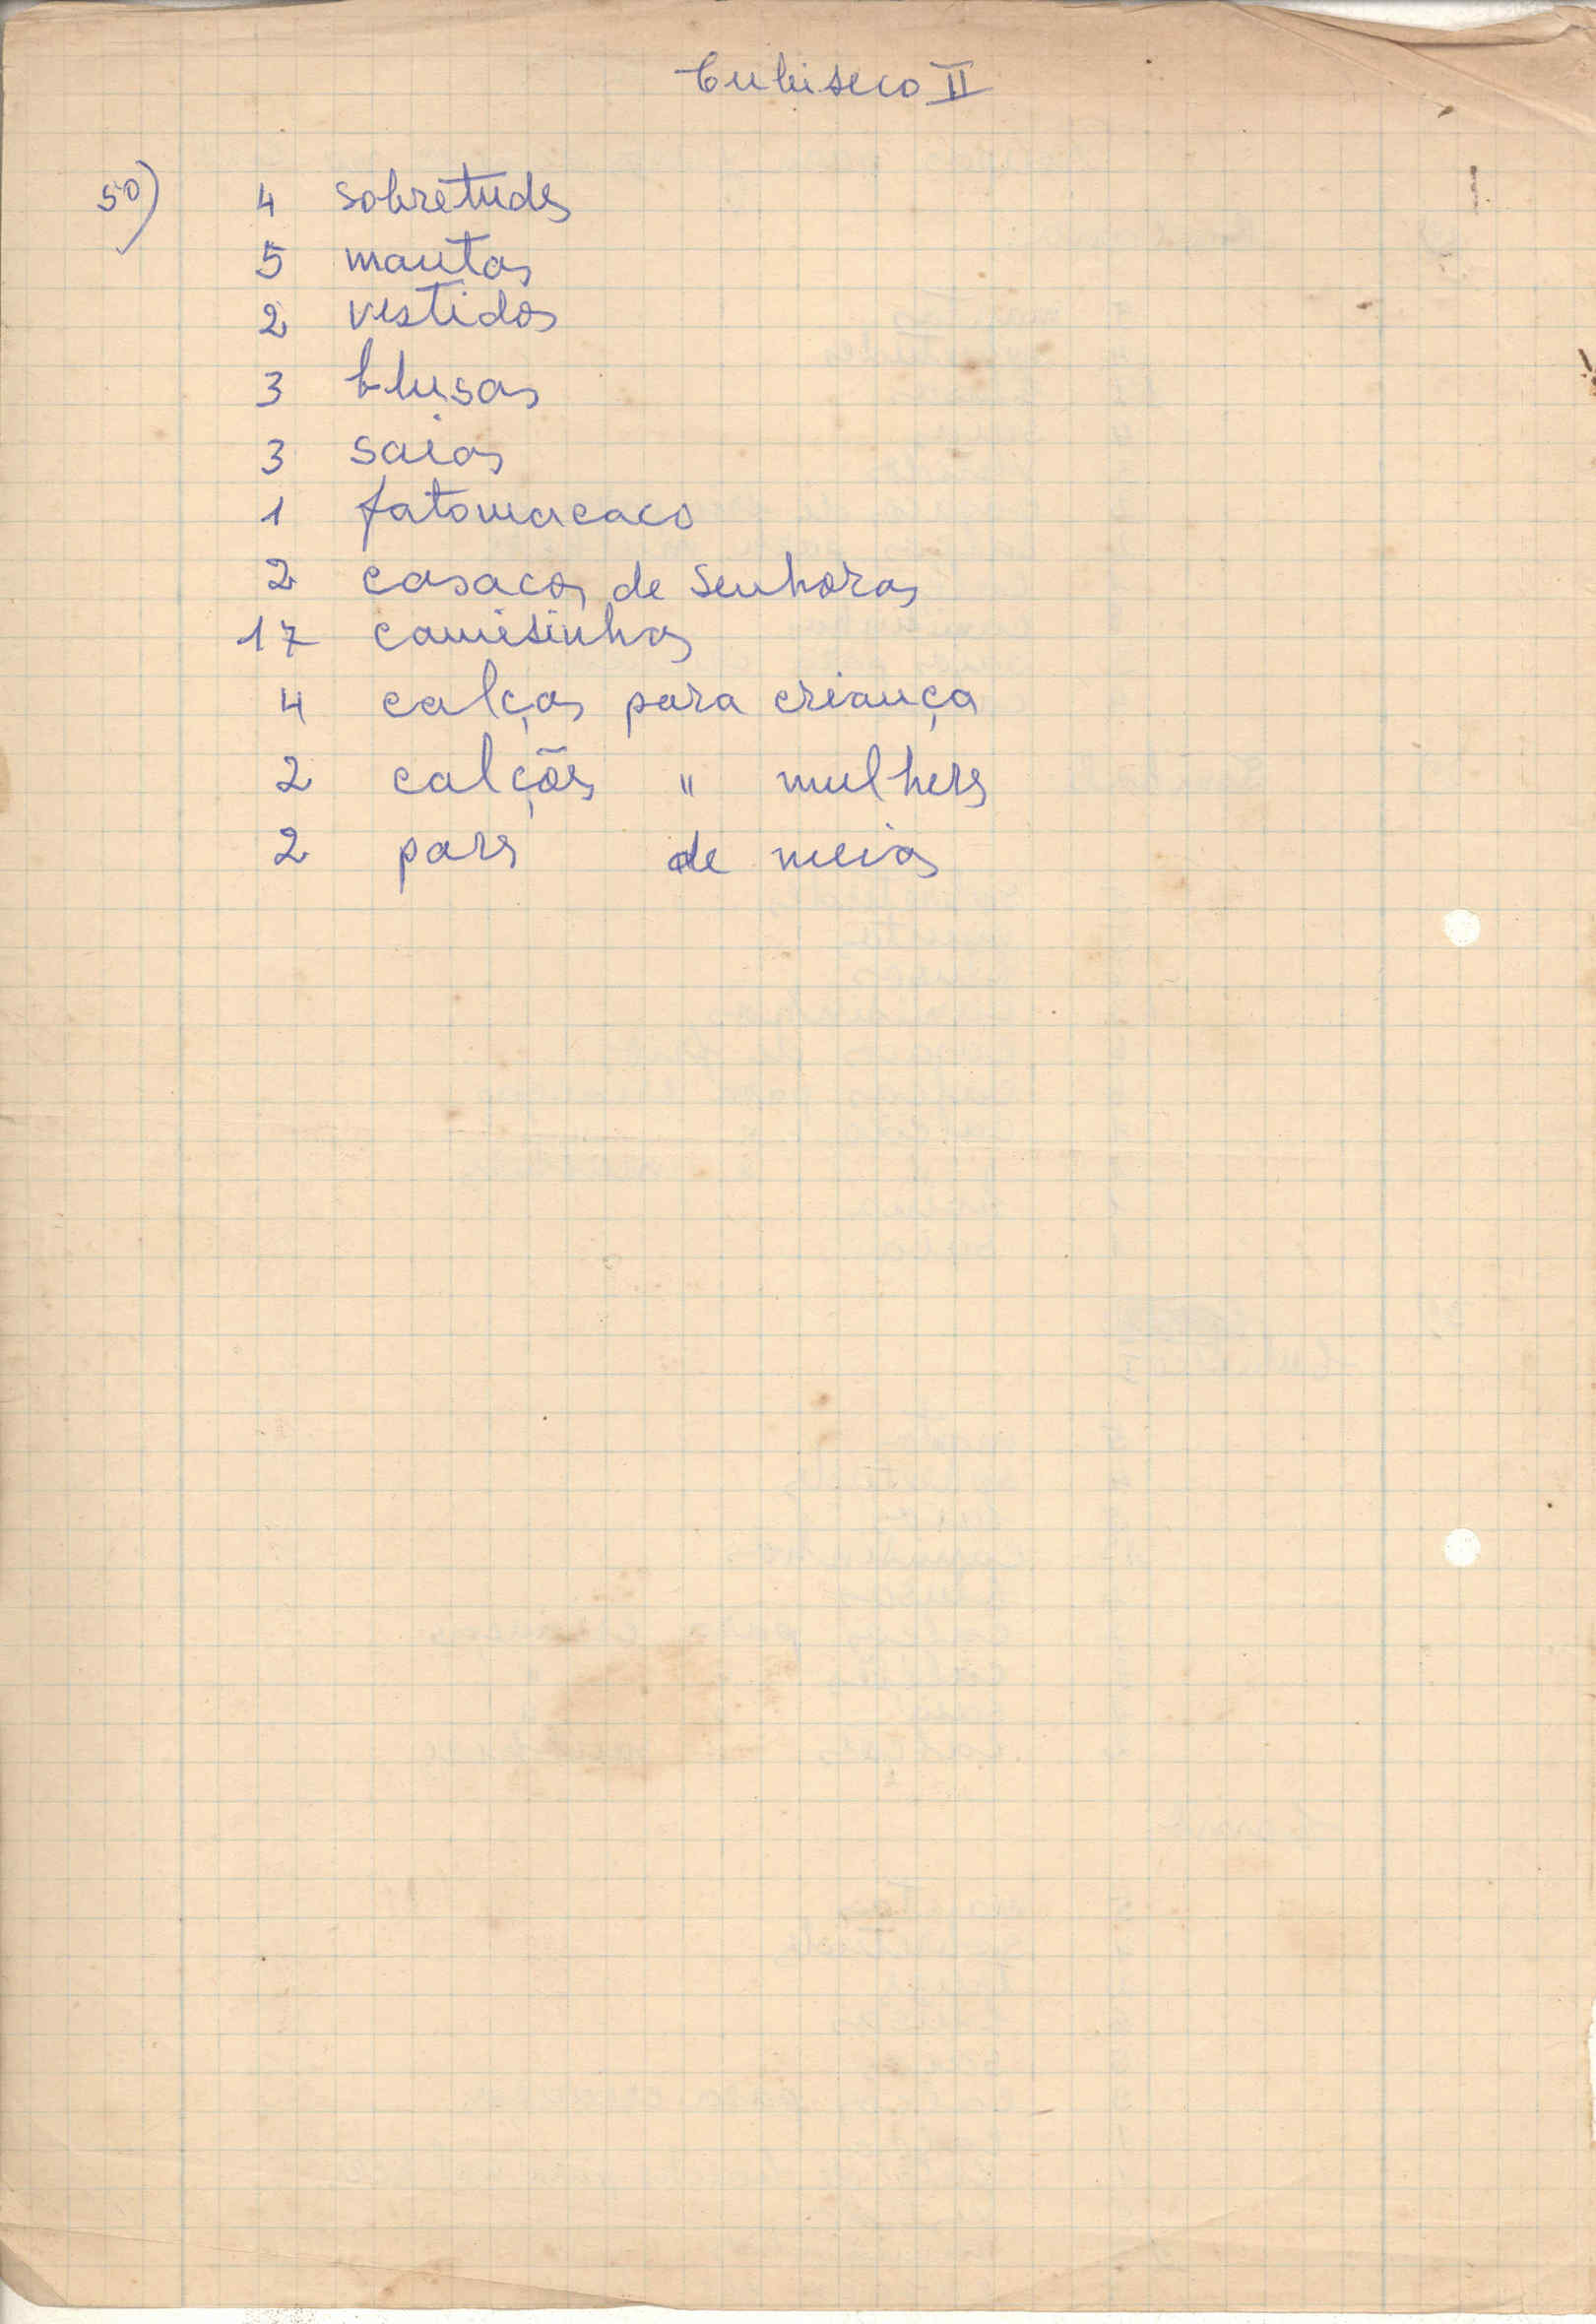 Cubiseco II
50) 4 sobretudos
5 mantas
2 vestidos
3 blusas
3 saias
1 fatomacaco
2 casacos de senhoras
17 camisinhas
4 calças para criança
2 calções " mulhers
2 pars de meias